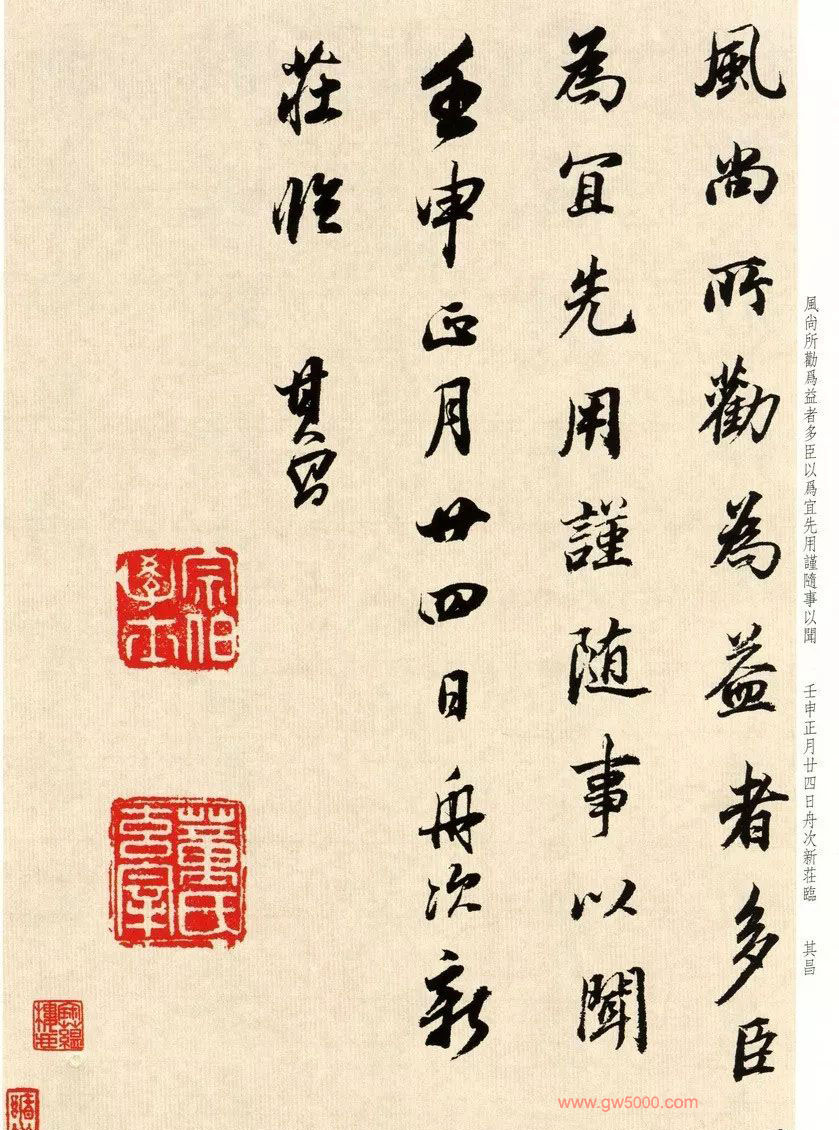 風尚所勸為益者多臣
為宜先用謹随事以聞
壬申正月廿四日舟次新
莊臨 其昌
宗伯學士
董氏玄宰
風尚所勸爲益者多臣以爲宜先用謹隨事以聞 壬申正月廿四日舟次新莊臨 其昌
www.gw5000.com